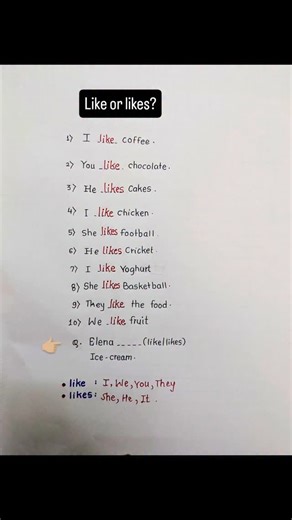 Like or likes?
1) I like coffee.
2) You like chocolate.
3) He likes Cakes.
4) I like chicken.
5) She likes football.
6) He likes Cricket.
7) I like Yoghurt
8) She likes Basketball.
9) They like the food.
10) We like fruit
Q. Elena _____ (like/likes)
Ice-cream.
• like : I, We, You, They
• likes: She, He, It.